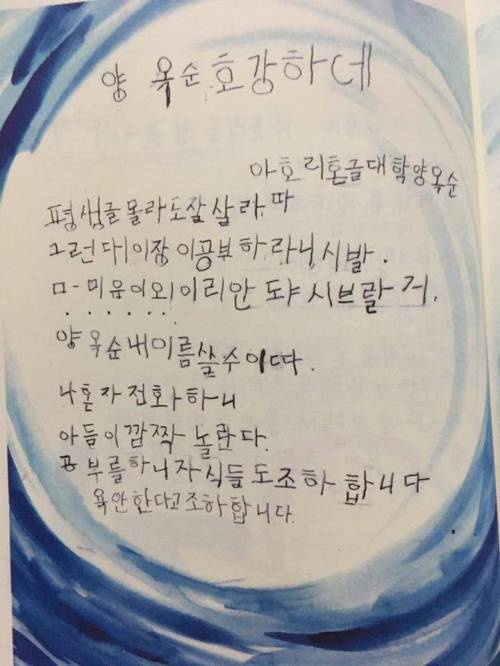 양 옥순 호강하네
아호리 혼글대학 양옥순
평생글 몰라도잘살라따
그런대 이장이공부하라니 시발.
마음이 외이리 안 도ㅑ 시브랄 거.
양옥순내이름쓸수이따.
나혼자전화하니
아들이깜짝놀란다.
공부를하니자식들도조하합니다
욕안한다고조하합니다.